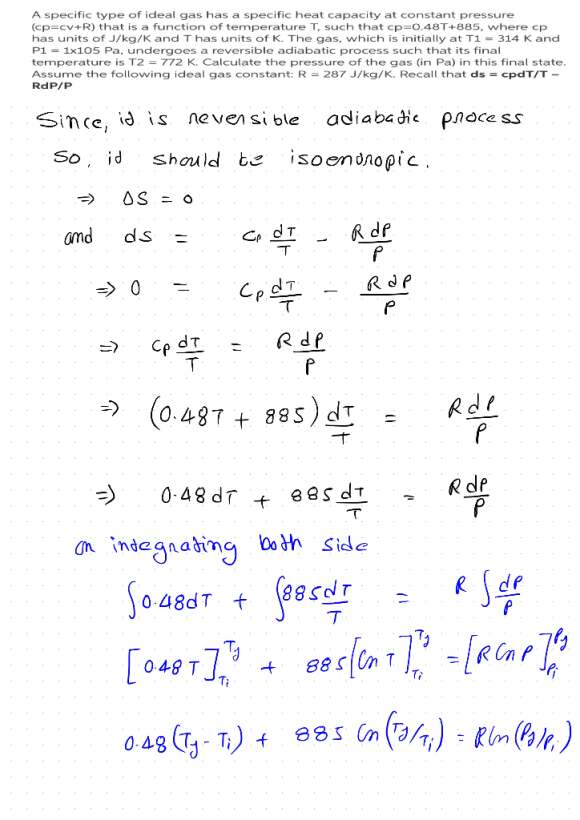 A specific type of ideal gas has a specific heat capacity at constant pressure
(cp=cv+R) that is a function of temperature T, such that cp=0.48T+885, where cp
has units of J/kg/K and T has units of K. The gas, which is initially at T1 = 314 K and
P1 = 1x105 Pa, undergoes a reversible adiabatic process such that its final
temperature is T2 = 772 K. Calculate the pressure of the gas (in Pa) in this final state.
Assume the following ideal gas constant: R = 287 J/kg/K. Recall that ds = cpdT/T –
RdP/P
Since, it is reversible adiabatic process
So, it should be isoentropic.
⇒ ΔS = 0
and ds = Cp dT/T - R dP/P
⇒ 0 = Cp dT/T - R dP/P
⇒ Cp dT/T = R dP/P
⇒ (0.48T + 885) dT/T = R dP/P
⇒ 0.48 dT + 885 dT/T = R dP/P
on integrating both side
∫0.48dT + ∫885 dT/T = R ∫ dP/P
[0.48 T]_Ti^Tf + 885 [ln T]_Ti^Tf = [R ln P]_Pi^Pf
0.48 (Tf - Ti) + 885 ln (Tf/Ti) = R ln (Pf/Pi)